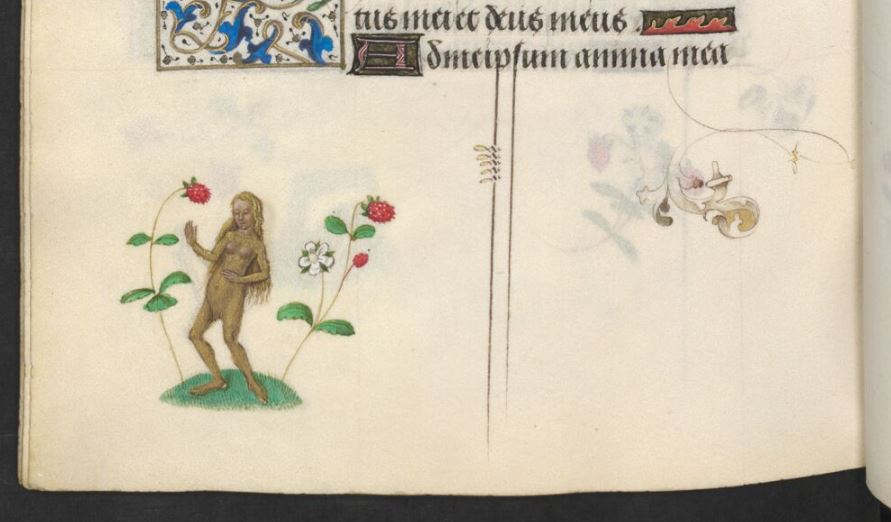 tus meret deus meus
Ad meipsum anima mea